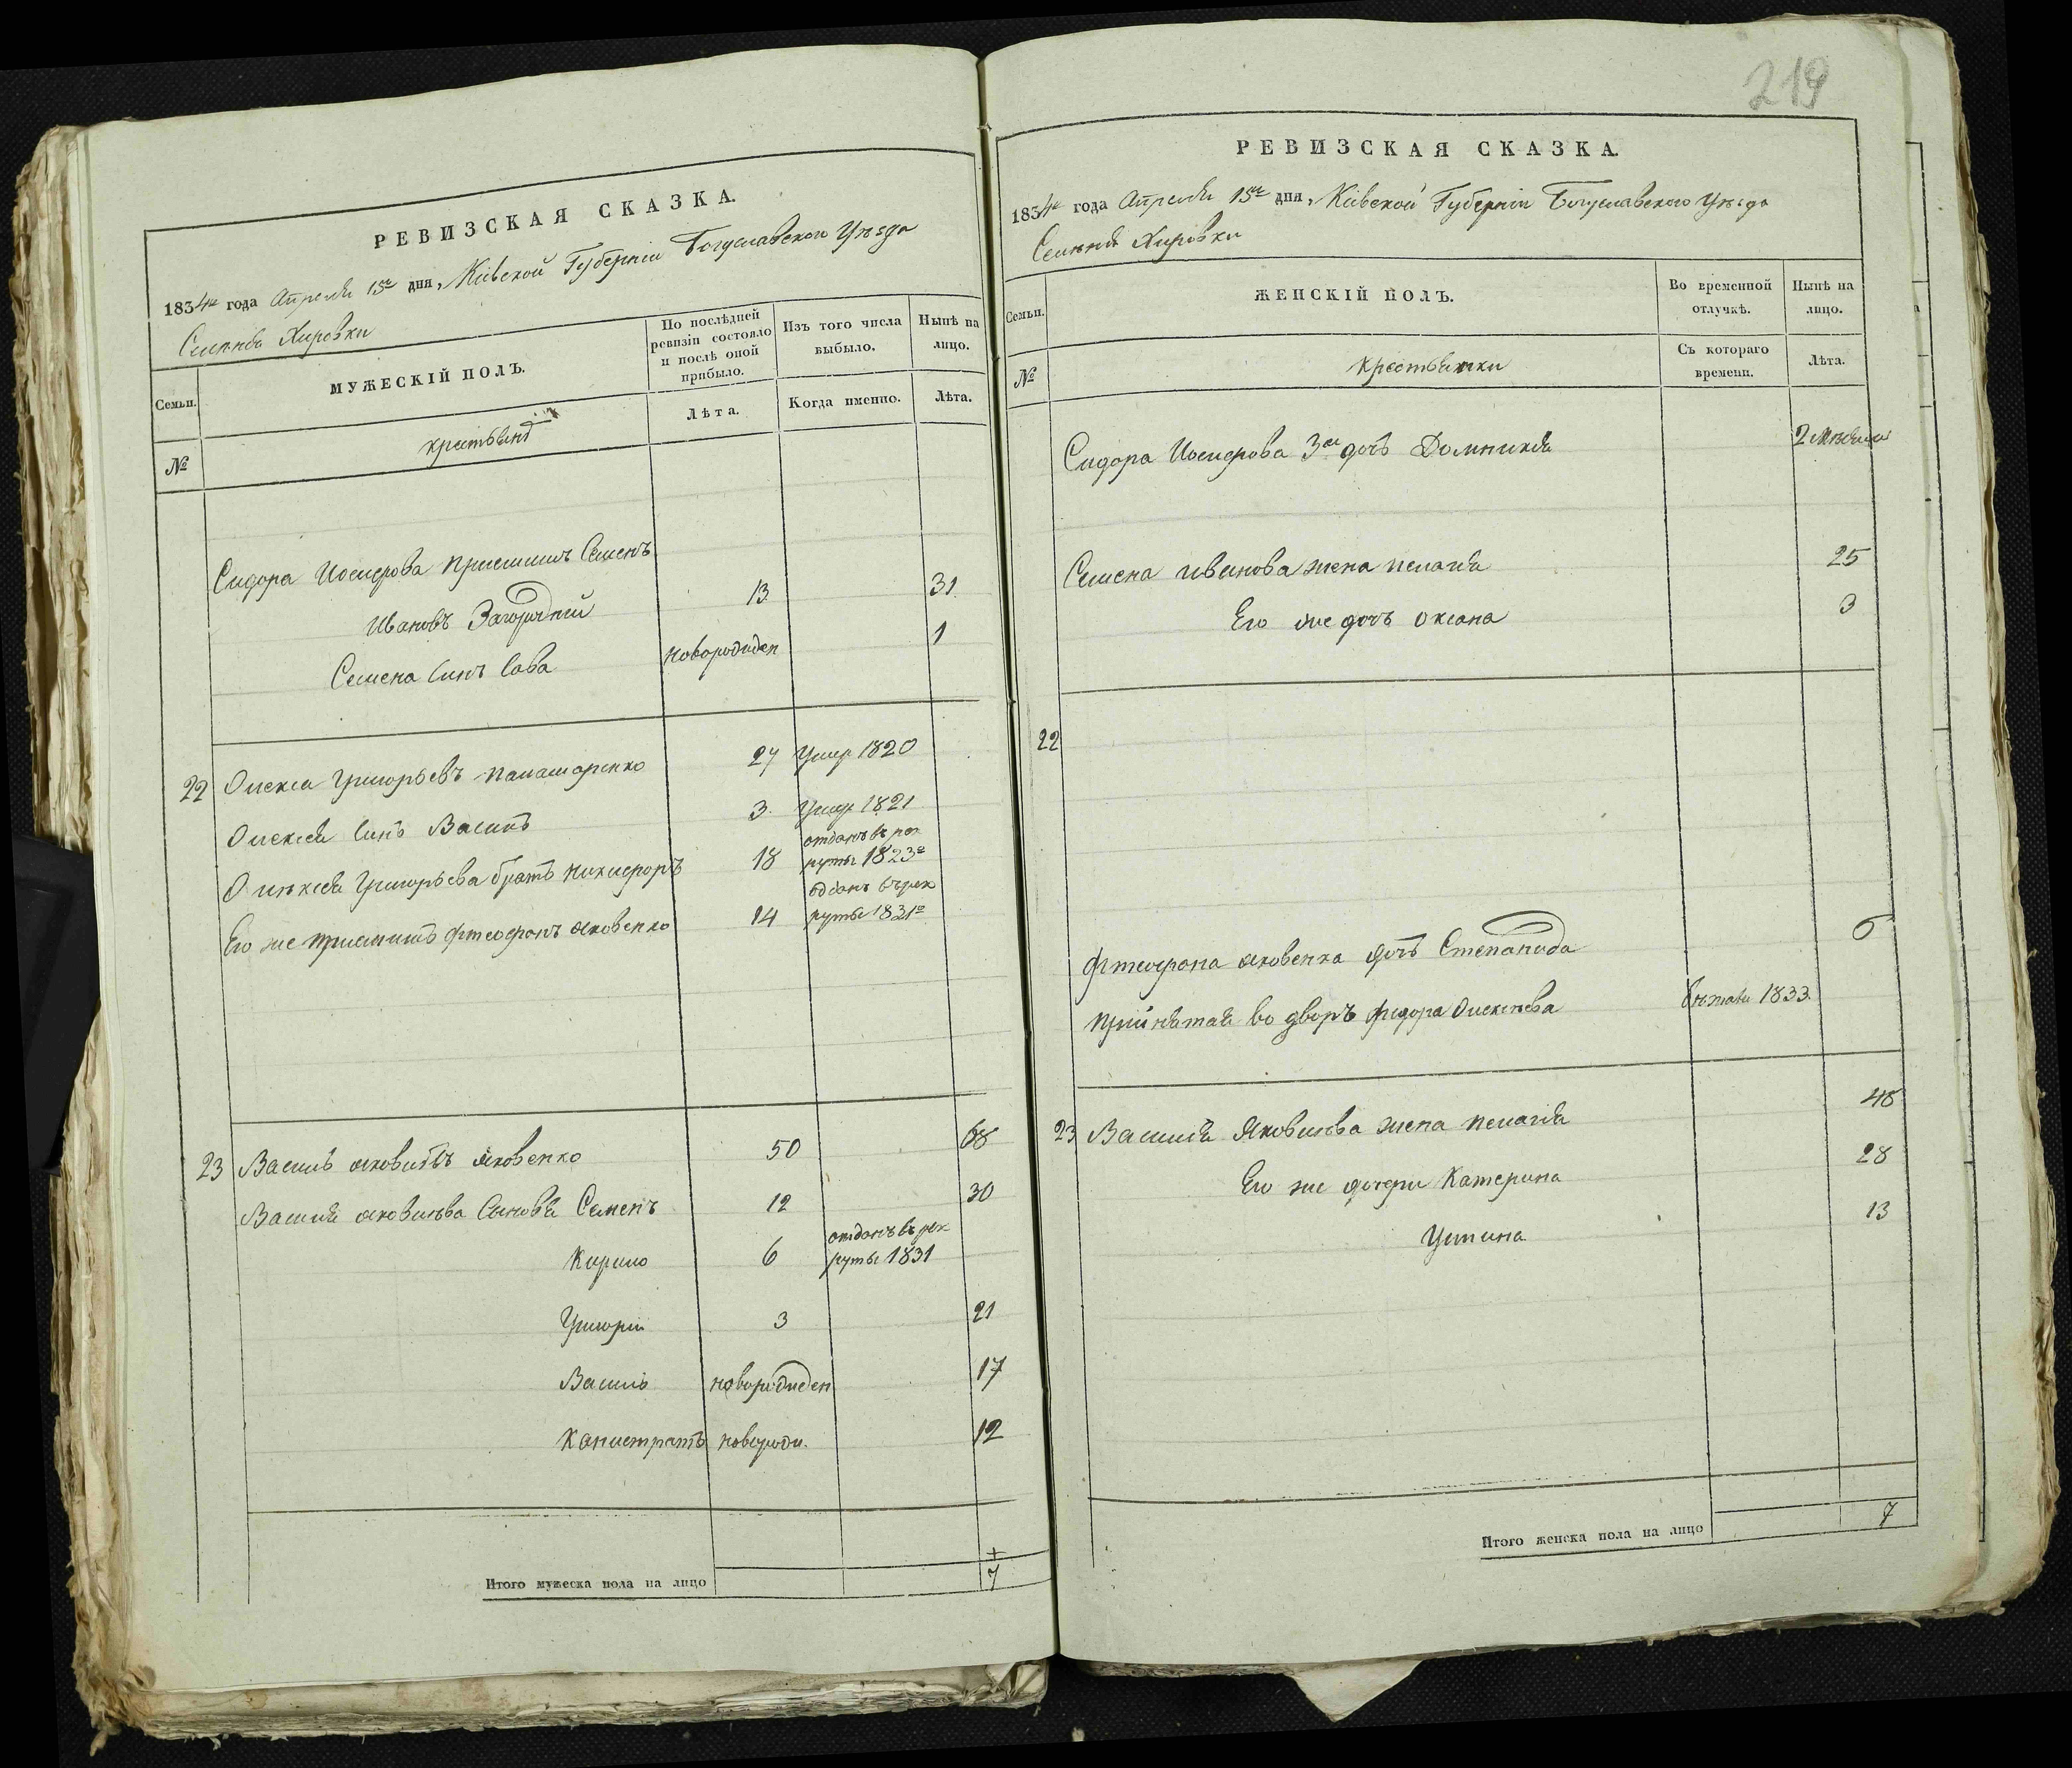 РЕВИЗСКАЯ СКАЗКА.
1834го года Апреля 15го дня, Кіевской Губерніи Богуславского Уѣзда
Селенія Хировки
Семьи.
МУЖЕСКІЙ ПОЛЪ.
По послѣдней ревизіи состояло и послѣ оной прибыло.
Изъ того числа выбыло.
Нынѣ на лицо.
№
крестьянъ
Лѣта.
Когда именно.
Лѣта.
Сидора Иосифова приемишъ Семенъ
Ивановъ Загородній 13 31
Семена Синъ Сава новорожден 1
22 Олекса Григорьевъ Палашаренко 27 Умер 1820
Олексѣя Синъ Василь 3 Умер 1821
Олѣксѣя Григорьева братъ Никифоръ 18 отданъ в рек
руты 1823го
Его же приемишъ Фтеофанъ Яковенко 14 одданъ в рек
руты 1831го
23 Василь Яковлѣвъ Яковенко 50 68
Василя Яковлѣва Синовя Семенъ 12 30
Кирило 6 отданъ в рек
руты 1831
Григорій 3 21
Василь новорожден 17
Калистратъ новорожд. 12
Итого мужеска пола на лицо 7
219
РЕВИЗСКАЯ СКАЗКА.
1834го года Апреля 15го дня, Кіевской Губерніи Богуславского Уѣзда
Селенія Хировки
Семьи.
ЖЕНСКІЙ ПОЛЪ.
Во временной отлучкѣ.
Нынѣ на лицо.
№
Крестьянки
Съ котораго времени.
Лѣта.
Сидора Иосифова 3я дочь Домникія 2 мѣсяца
Семена Иванова жена Пелагія 25
Его же дочь Оксана 3
22
Фтеофана Яковенка дочь Степанида 6
прийнятая во дворъ Федора Олексѣева бѣжала 1833.
23 Василя Яковлѣва жена Пелагія 48
Его же дочери Катерина 28
Устина 13
Итого женска пола на лицо 7